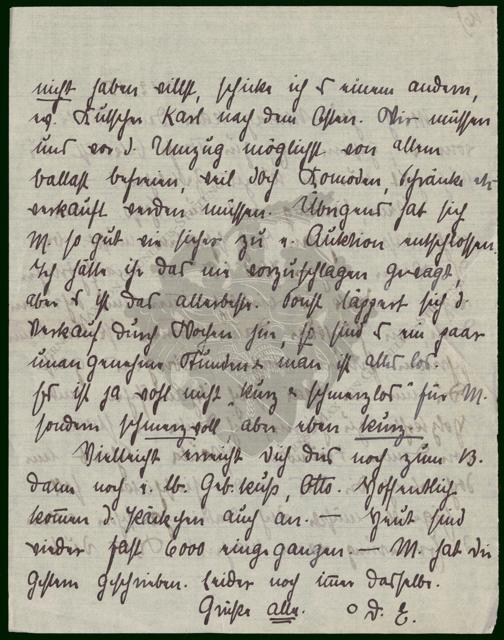 nicht haben willst, schicke ich es einem andern,
ev. Kutscher Karl nach dem Osten. Wir müssen
uns vor d. Umzug möglichst von allem
ballast befreien, weil doch Komoden, Schränke etc
verkauft werden müssen. Übrigens hat sich
M. so gut wie sicher zu e. Auktion entschlossen.
Ich hätte ihr das nie vorzuschlagen gewagt,
aber es ist das allerbeste. Sonst läppert sich d.
Verkauf durch Wochen hin, so sind es ein paar
unangenehme Stunden & man ist alles los.
Es ist ja wohl nicht "kurz & schmerzlos" für M.
sondern schmerzvoll, aber eben kurz.
Vielleicht erreicht Dich dies noch zum 13.
dann noch e. lb. Geb.kuß, Otto. Hoffentlich
kommen d. Päckchen auch an. — Heut sind
wieder fast 6000 eingegangen — M. hat Dir
gestern geschrieben. Leider noch immer dasselbe.
Grüße alle. D. E.